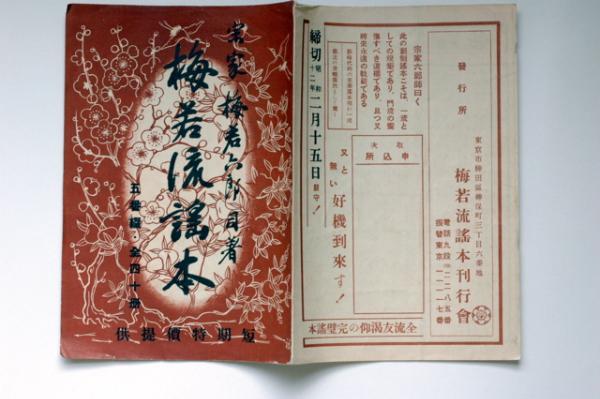 宗家 梅若六郎自著
梅若流謡本
五番綴 全四十冊
短期特價提供
發行所
東京市神田區神保町三丁目六番地
梅若流謡本刊行會
電話九段㉝二二八五番
振替東京一一一一七番
宗家六郎師曰く
此の新制謡本こそは、一流と
しての規範であり、門流の奮
つて
將來永遠の軌範である
取次
申込所
締切 昭和十二年 二月十五日 嚴守!
又と無い 好機到來す!
全流友渇仰の完璧謡本